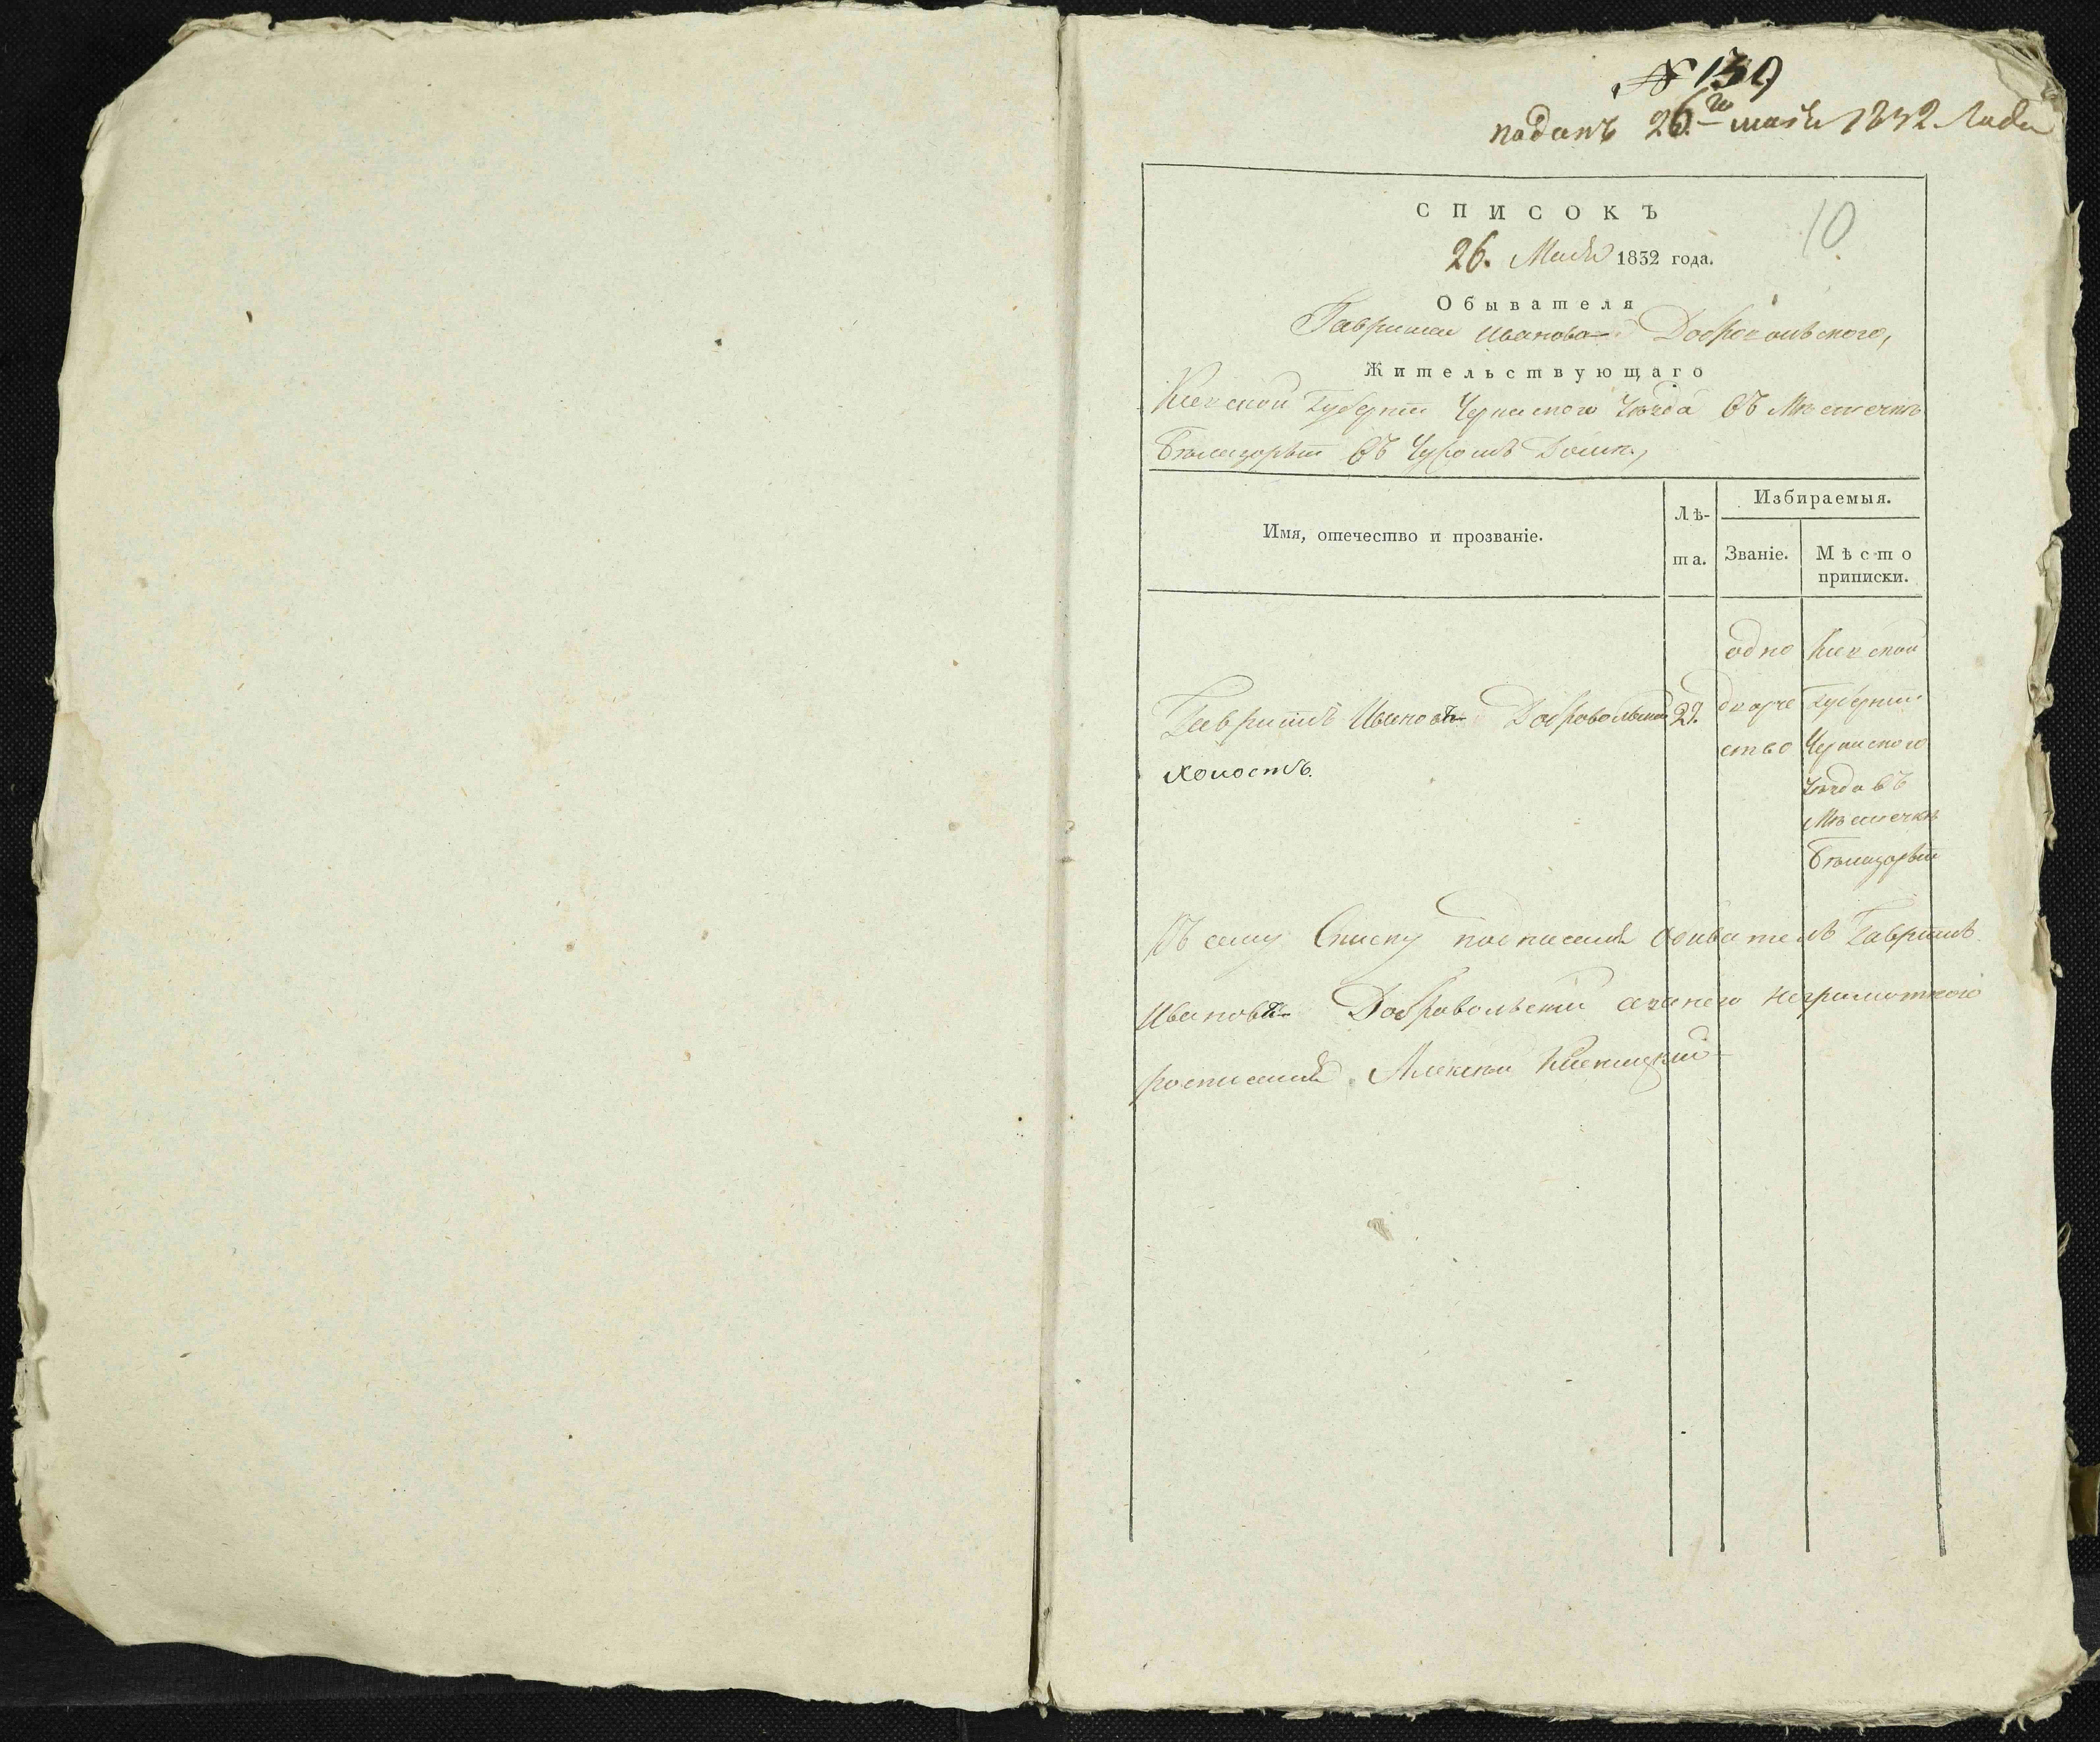 № 139
поданъ 26.го мая 1832 года
СПИСОКЪ
10
26. Мая 1832 года.
Обывателя
Гавриила Иванова Добровольского,
Жительствующаго
Киевской Губернии Черкаского уезда въ Мѣстечкѣ
въ Доме,
Имя, отечество и прозваніе.
Лѣ-
та.
Избираемыя.
Званіе.
Мѣсто
приписки.
Гавриилъ Ивановъ Добровольский
холостъ.
одно
дворче
ство
Киевской
Губернии
Черкаского
уезда въ
Мѣстечкѣ
Къ сему Списку подписался обыватель Гавриилъ
Ивановъ Добровольский а за него неграмотного
росписался Алексей